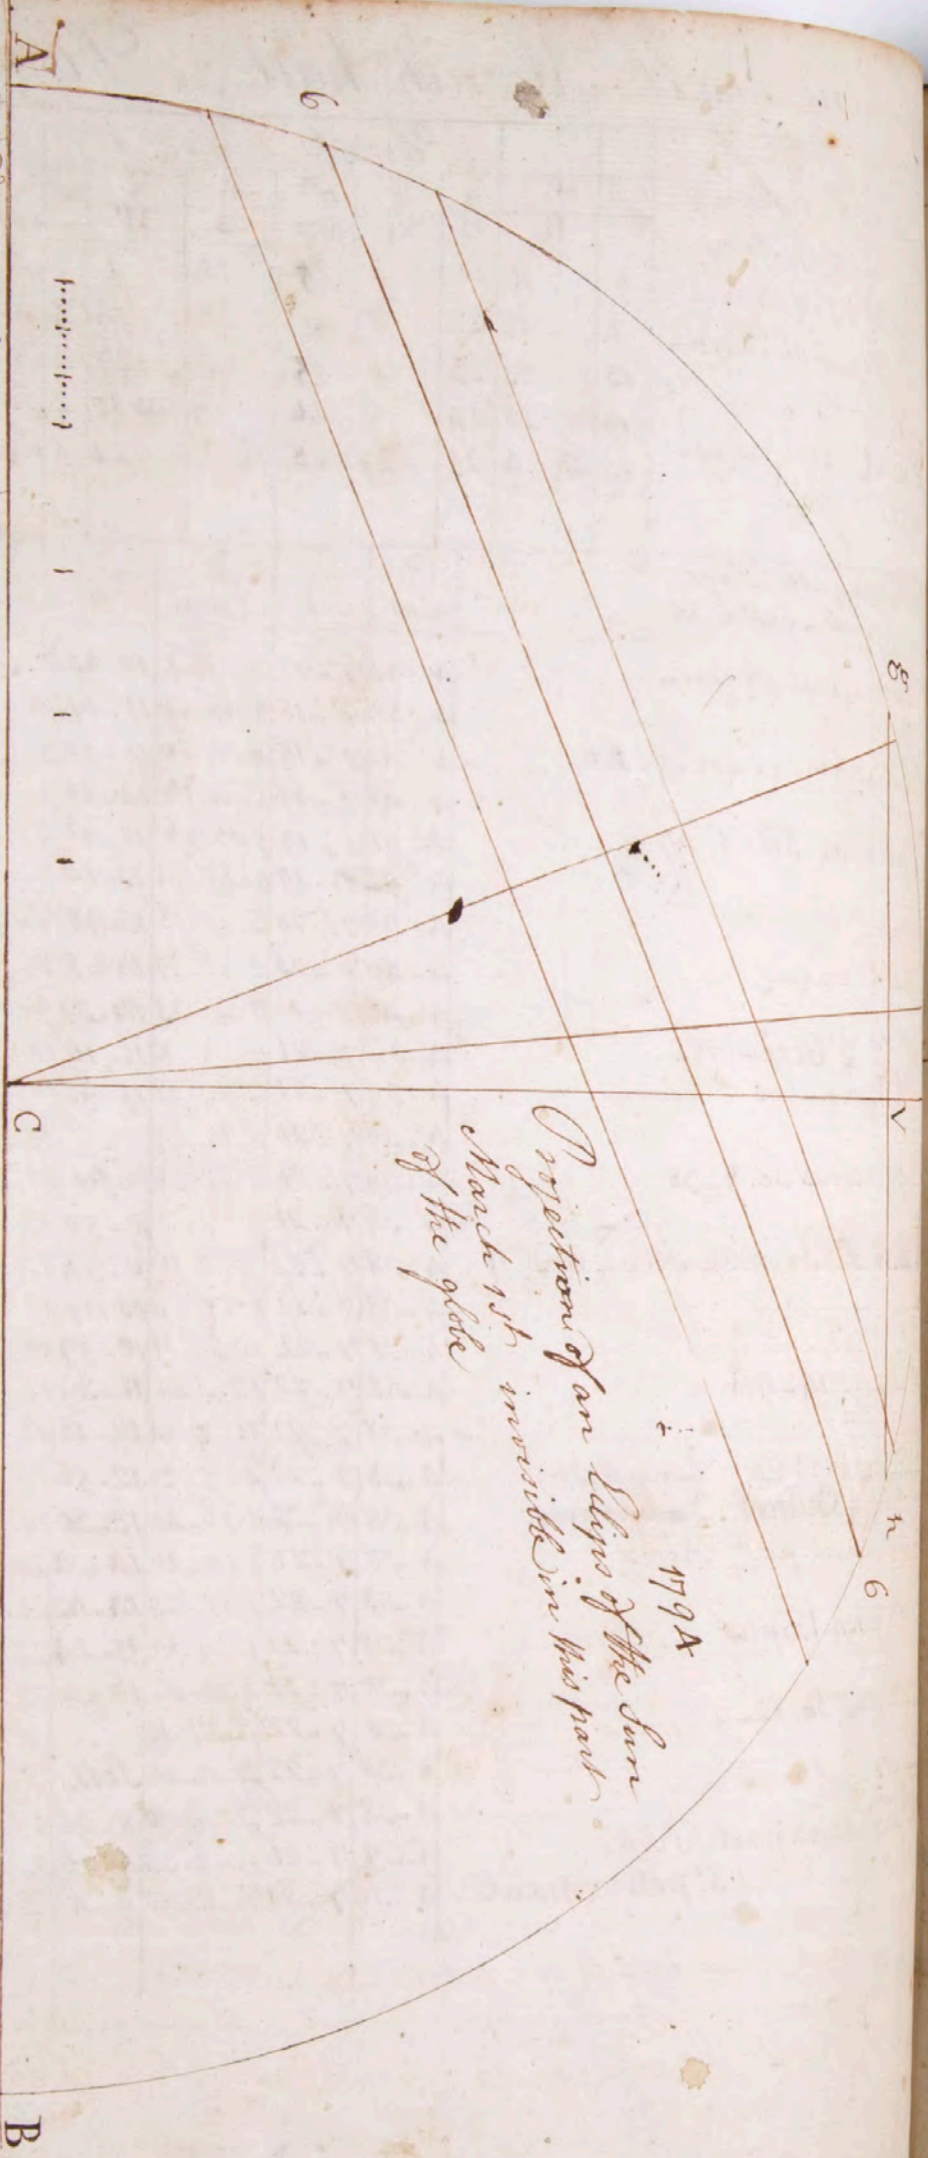 g
V
n
6
6
179A
Projection of an Eclips of the Sun
March 1st invisible in this part
of the globe
A
C
B